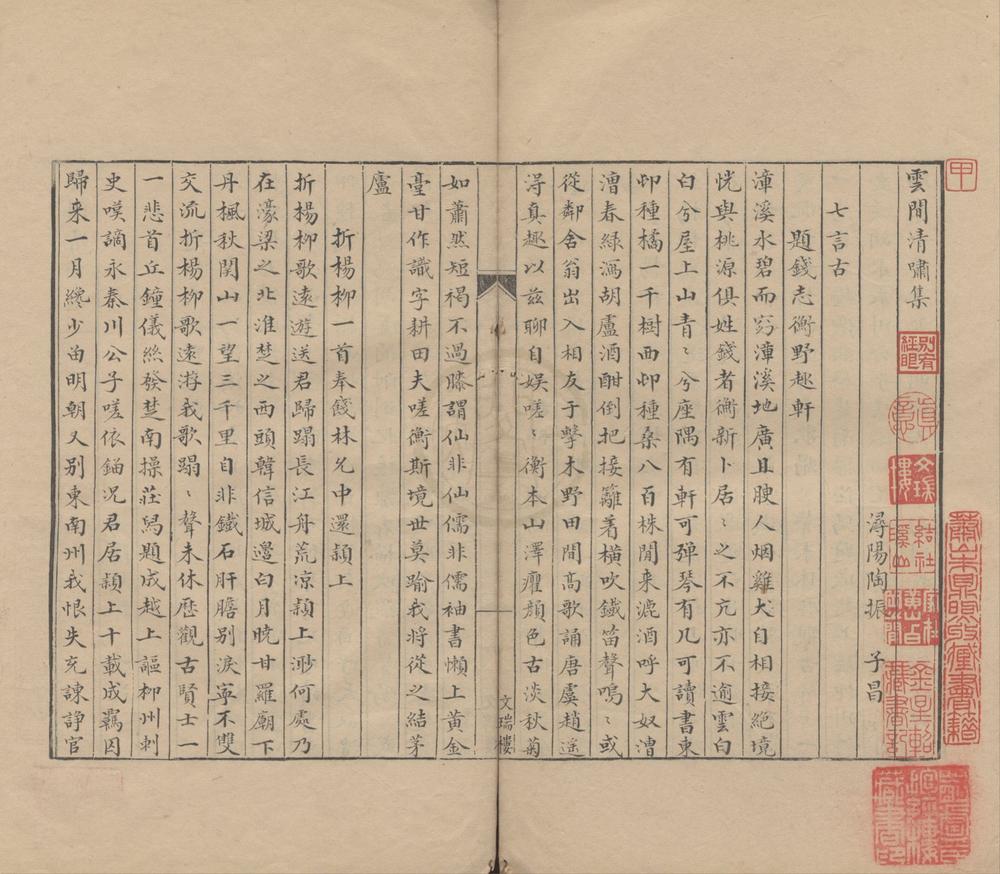 雲間清嘯集
潯陽陶振 子昌
七言古
題錢志衡野趣軒
漳溪水碧而窈漳溪地廣且腴人烟雞犬自相接絕境
恍與桃源俱姓錢者衡新卜居〻之不亢亦不逾雲白
白兮屋上山青〻兮座隅有軒可彈琴有几可讀書東
邨種橘一千樹西邨種桑八百株閒来漉酒呼大奴漕
漕春綠瀉胡盧酒酣倒把接籬着橫吹鐵笛聲鳴〻或
從鄰舍翁出入相友于擊木野田間高歌誦唐虞趙遥
淂真趣以兹聊自娱嗟〻衡本山澤癯顔色古淡秋菊
如蕭然短褐不過膝謂仙非仙儒非儒袖書懶上黄金
臺甘作識字耕田夫嗟衡斯境世莫踰我將從之結茅
廬
折楊柳一首奉錢林允中還潁上
折楊柳歌遠遊送君歸蹋長江舟荒凉潁上渺何處乃
在濠梁之北淮楚之西頭韓信城邊白月曉甘羅廟下
丹楓秋関山一望三千里自非鐵石肝膽别淚寧不雙
交流折楊柳歌遠游我歌蹋〻聲未休歷觀古賢士一
一悲首丘鐘儀絲發楚南操莊舄題成越上謳柳州刺
史嘆謫永秦川公子嗟依錨况君居潁上十載成羈囚
歸来一月纔少畄明朝又别東南州我恨失充諫諍官
文瑞樓
甲
别有經眼
文瑞樓
結社溪山
家在黄山白
金星軺藏書記